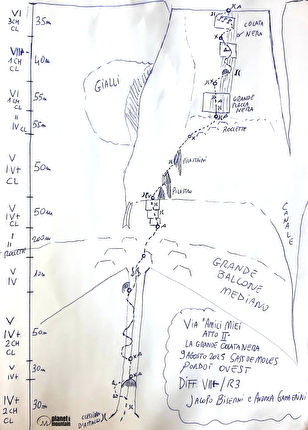 VI
3CH
CL
35m
COLATA
NERA
1CH
CL
40m
GIALLI
VI
1CH
CL
55m
GRANDE
PLACCA
NERA
II
IV CL
55m
ROCCETTE
V
IV+
CL
50m
PILASTRINI
PILASTRO
V
IV+
CL
50m
CANALE
I
II
ROCCETTE
200m
GRANDE
BALCONE
MEDIANO
V
IV
VIA "AMICI MIEI
ATTO II"
LA GRANDE COLATA NERA
9 AGOSTO 2025 SASS DE MOLES
PORDOI OVEST
DIFF VIII+/R3
JACOPO BISERNI E
V
IV+
2CH
CL
50m
V
IV+
30m
IV+
2CH
CL
30m
planet mountain